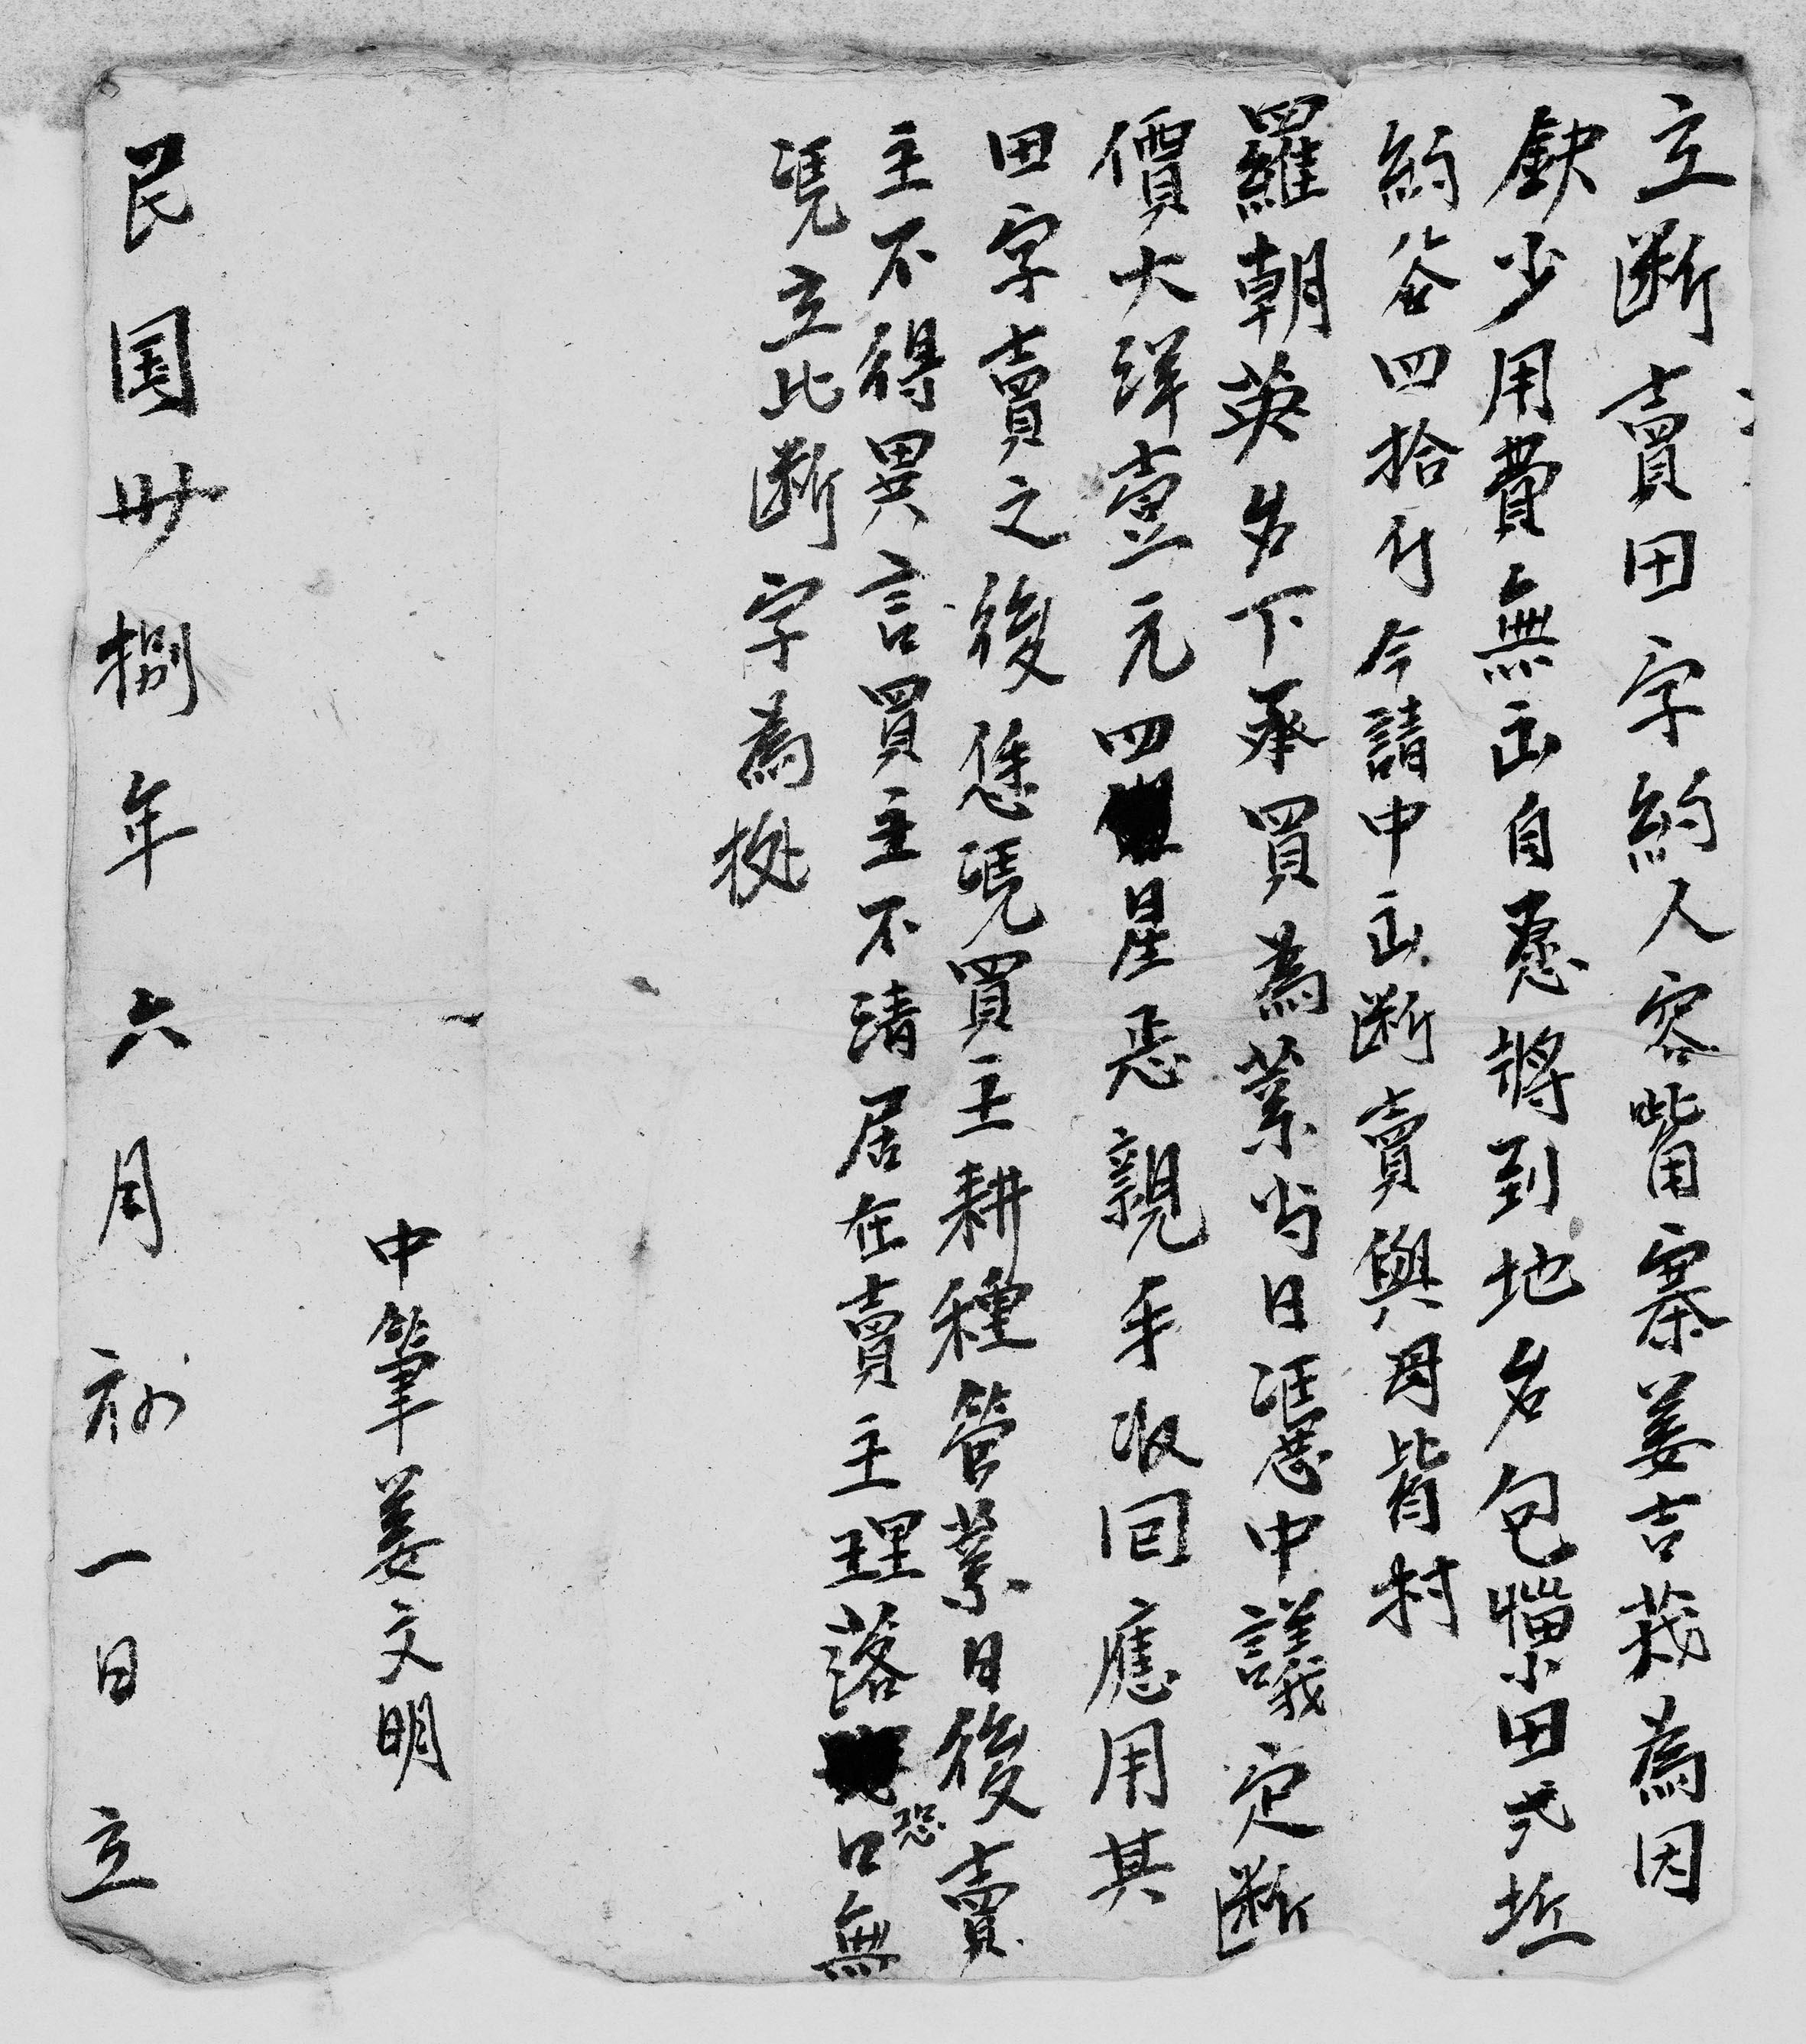 立断賣田字約人容嘴寨姜吉栽為因
缺少用費無出自愿將到地名包田弍坵
約谷四拾斤今請中出断賣與毋背村
羅朝英名下承買為業当日憑中議定断
價大洋壹元四星悉親手收回應用其
田字賣之後凭買主耕種管業日後賣
主不得異言買主不清居在賣主理落恐口無
凭立此断字為拠
中筆姜文明
民国卅捌年六月初一日立